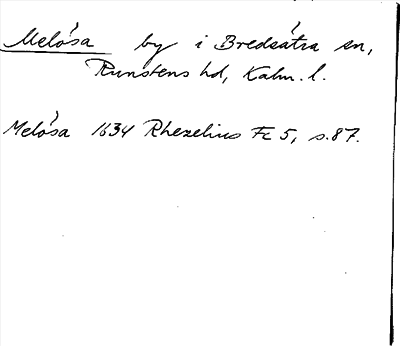 Melösa by i Bredsätra sn,
Runstens hd, Kalm. l.
Melösa 1634 Rhezelius Fc 5, s. 87.